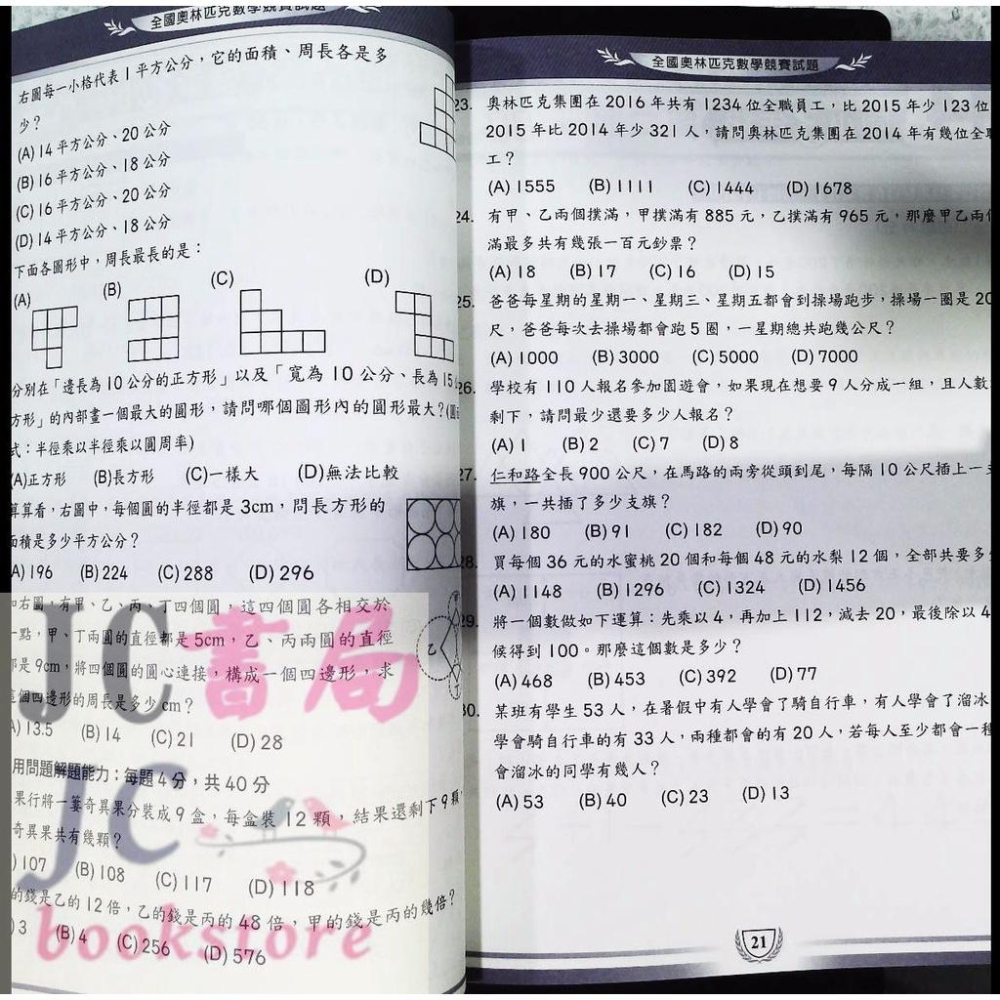 全國奧林匹克數學競賽試題
右圖每一小格代表1平方公分,它的面積、周長各是多
少?
(A)14平方公分、20公分
(B)16平方公分、18公分
(C)16平方公分、20公分
(D)14平方公分、18公分
下面各圖形中,周長最長的是:
(A) (B) (C) (D)
分別在「邊長為10公分的正方形」以及「寬為10公分、長為15
方形」的內部畫一個最大的圓形,請問哪個圖形內的圓形最大?
式:半徑乘以半徑乘以圓周率)
(A)正方形 (B)長方形 (C)一樣大 (D)無法比較
算算看,右圖中,每個圓的半徑都是3cm,問長方形的
面積是多少平方公分?
(A)196 (B)224 (C)288 (D)296
如右圖,有甲、乙、丙、丁四個圓,這四個圓各相交於
一點,甲、丁兩圓的直徑都是5cm,乙、丙兩圓的直徑
都是9cm,將四個圓的圓心連接,構成一個四邊形,求
這個四邊形的周長是多少cm?
乙
丁
(A)13.5 (B)14 (C)21 (D)28
用問題解題能力:每題4分,共40分
果行將一簍奇異果分裝成9盒,每盒裝12顆,結果還剩下9顆
奇異果共有幾顆?
)107 (B)108 (C)117 (D)118
的錢是乙的12倍,乙的錢是丙的48倍,甲的錢是丙的幾倍?
)3 (B)4 (C)256 (D)576
JC書局
JC
bookstore
全國奧林匹克數學競賽試題
23. 奧林匹克集團在2016年共有1234位全職員工,比2015年少123位
2015年比2014年少321人,請問奧林匹克集團在2014年有幾位全職
工?
(A)1555 (B)1111 (C)1444 (D)1678
24. 有甲、乙兩個撲滿,甲撲滿有885元,乙撲滿有965元,那麼甲乙兩個
滿最多共有幾張一百元鈔票?
(A)18 (B)17 (C)16 (D)15
25. 爸爸每星期的星期一、星期三、星期五都會到操場跑步,操場一圈是20
尺,爸爸每次去操場都會跑5圈,一星期總共跑幾公尺?
(A)1000 (B)3000 (C)5000 (D)7000
26. 學校有110人報名參加園遊會,如果現在想要9人分成一組,且人數
剩下,請問最少還要多少人報名?
(A)1 (B)2 (C)7 (D)8
27. 仁和路全長900公尺,在馬路的兩旁從頭到尾,每隔10公尺插上一支
旗,一共插了多少支旗?
(A)180 (B)91 (C)182 (D)90
28. 買每個36元的水蜜桃20個和每個48元的水梨12個,全部共要多少
(A)1148 (B)1296 (C)1324 (D)1456
29. 將一個數做如下運算:先乘以4,再加上112,減去20,最後除以4
候得到100。那麼這個數是多少?
(A)468 (B)453 (C)392 (D)77
30. 某班有學生53人,在暑假中有人學會了騎自行車,有人學會了溜冰
學會騎自行車的有33人,兩種都會的有20人,若每人至少都會一種
會溜冰的同學有幾人?
(A)53 (B)40 (C)23 (D)13
21